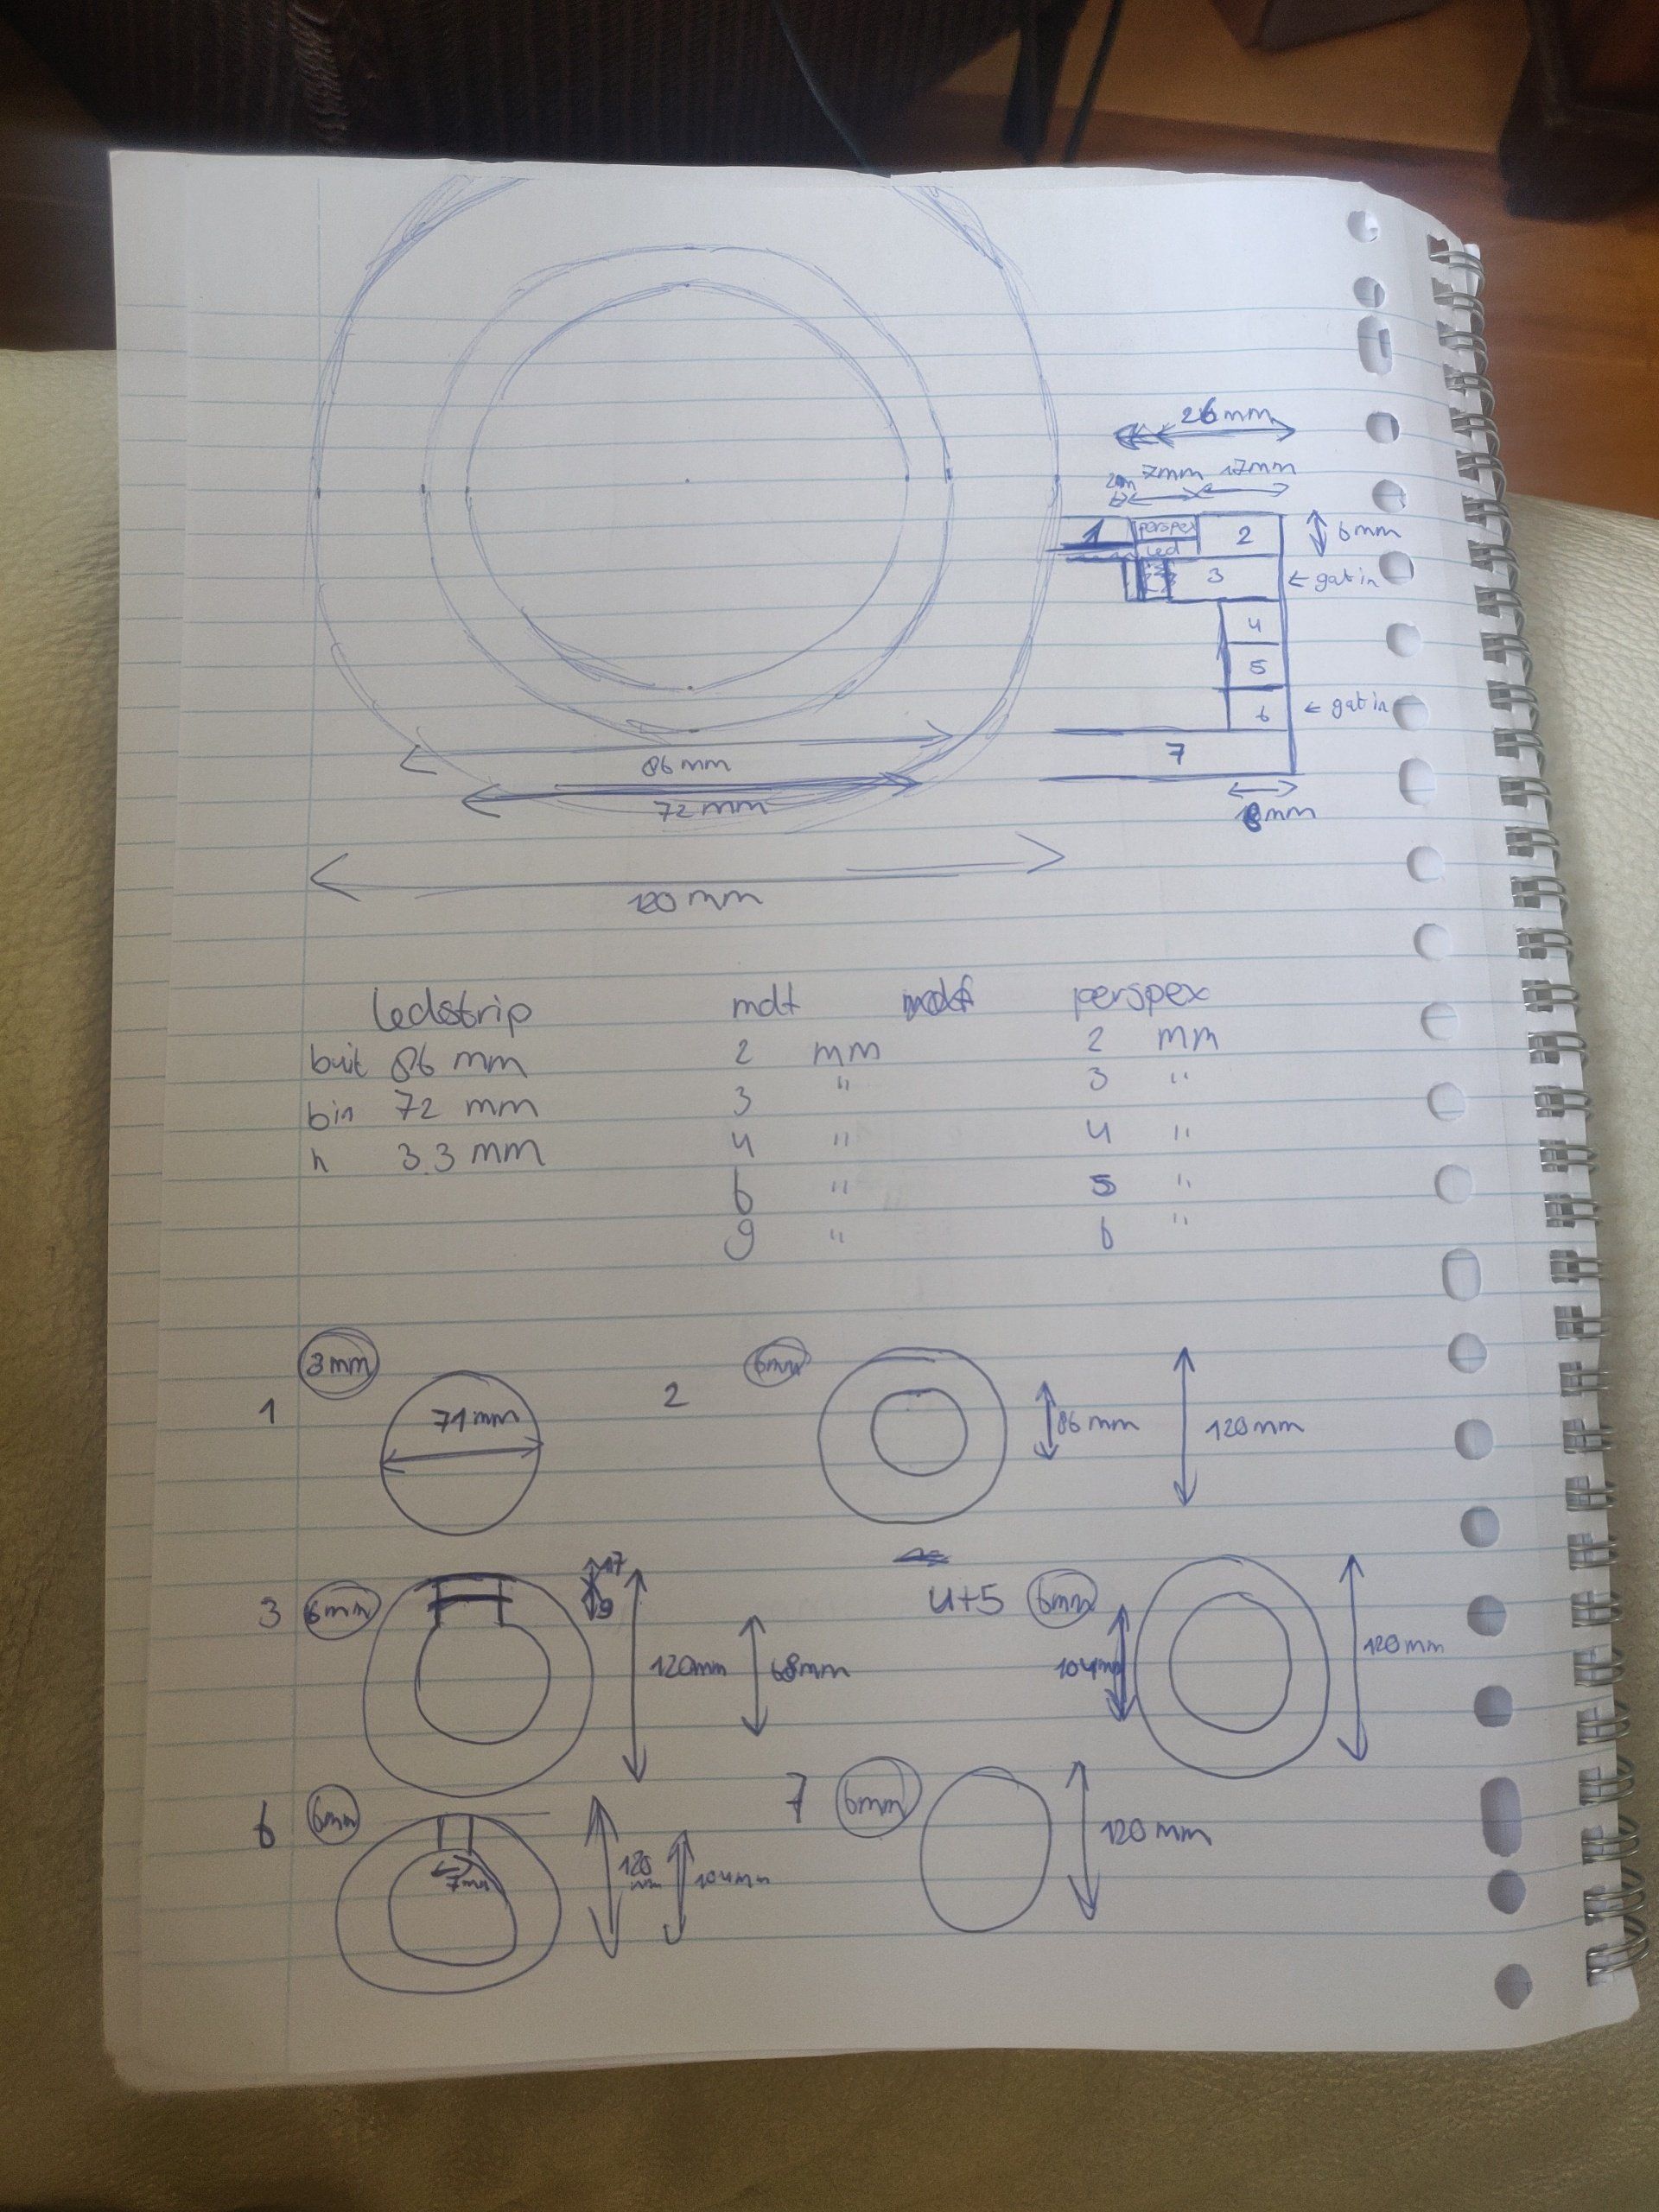 26 mm
7mm 17mm
1 perspex 2 6 mm
led
3 ← gat in
4
5
6 ← gat in
7
86 mm
72 mm
120 mm
ledstrip mdf perspex
buit 86 mm 2 mm 2 mm
bin 72 mm 3 " 3 "
h 3.3 mm 4 " 4 "
6 " 5 "
9 " 6 "
3mm 6mm
1 71 mm 2 86 mm 120 mm
17
3 6mm 9 4+5 6mm
120mm 68mm 104mm 120mm
6 6mm 7 6mm
7mm 120 mm 104mm 120 mm